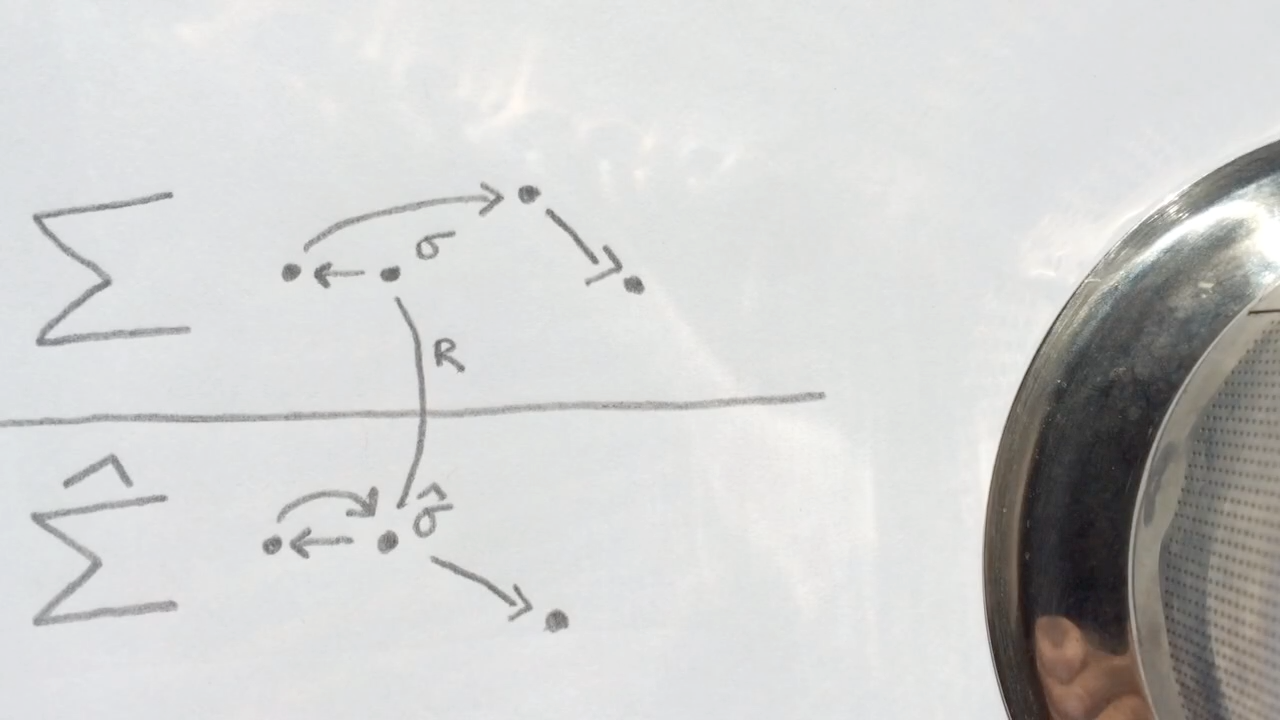 Σ
σ
R
Σ̂
σ̂